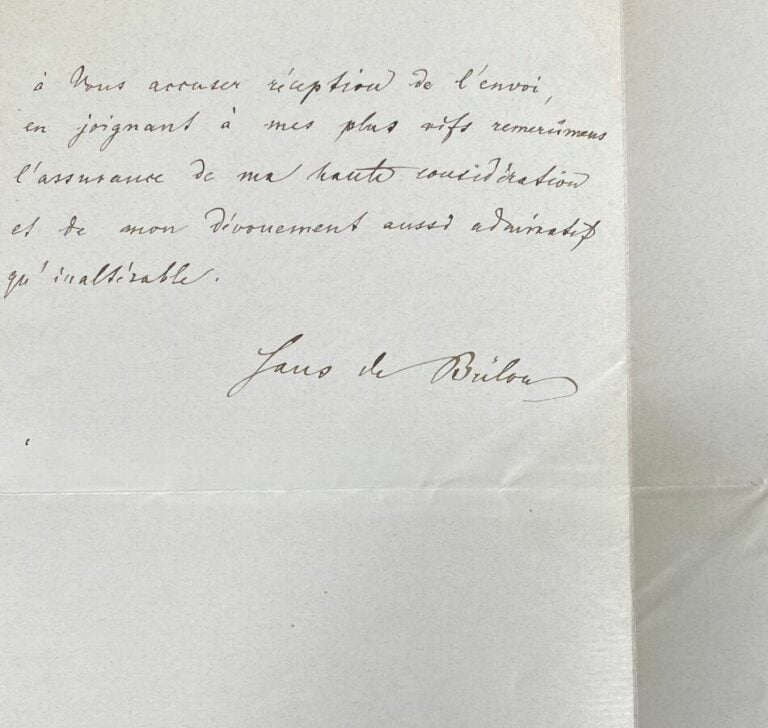 à Vous accuser réception de l'envoi,
en joignant à mes plus vifs remercîmens
l'assurance de ma haute considération
et de mon dévouement aussi admiratif
qu'inaltérable.
Hans de Bülow